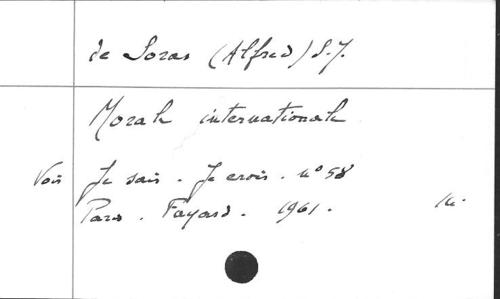 de Soras (Alfred) S.J.
Morale internationale
Voir Je sais. Je crois. nº 58
Paris. Fayard. 1961.